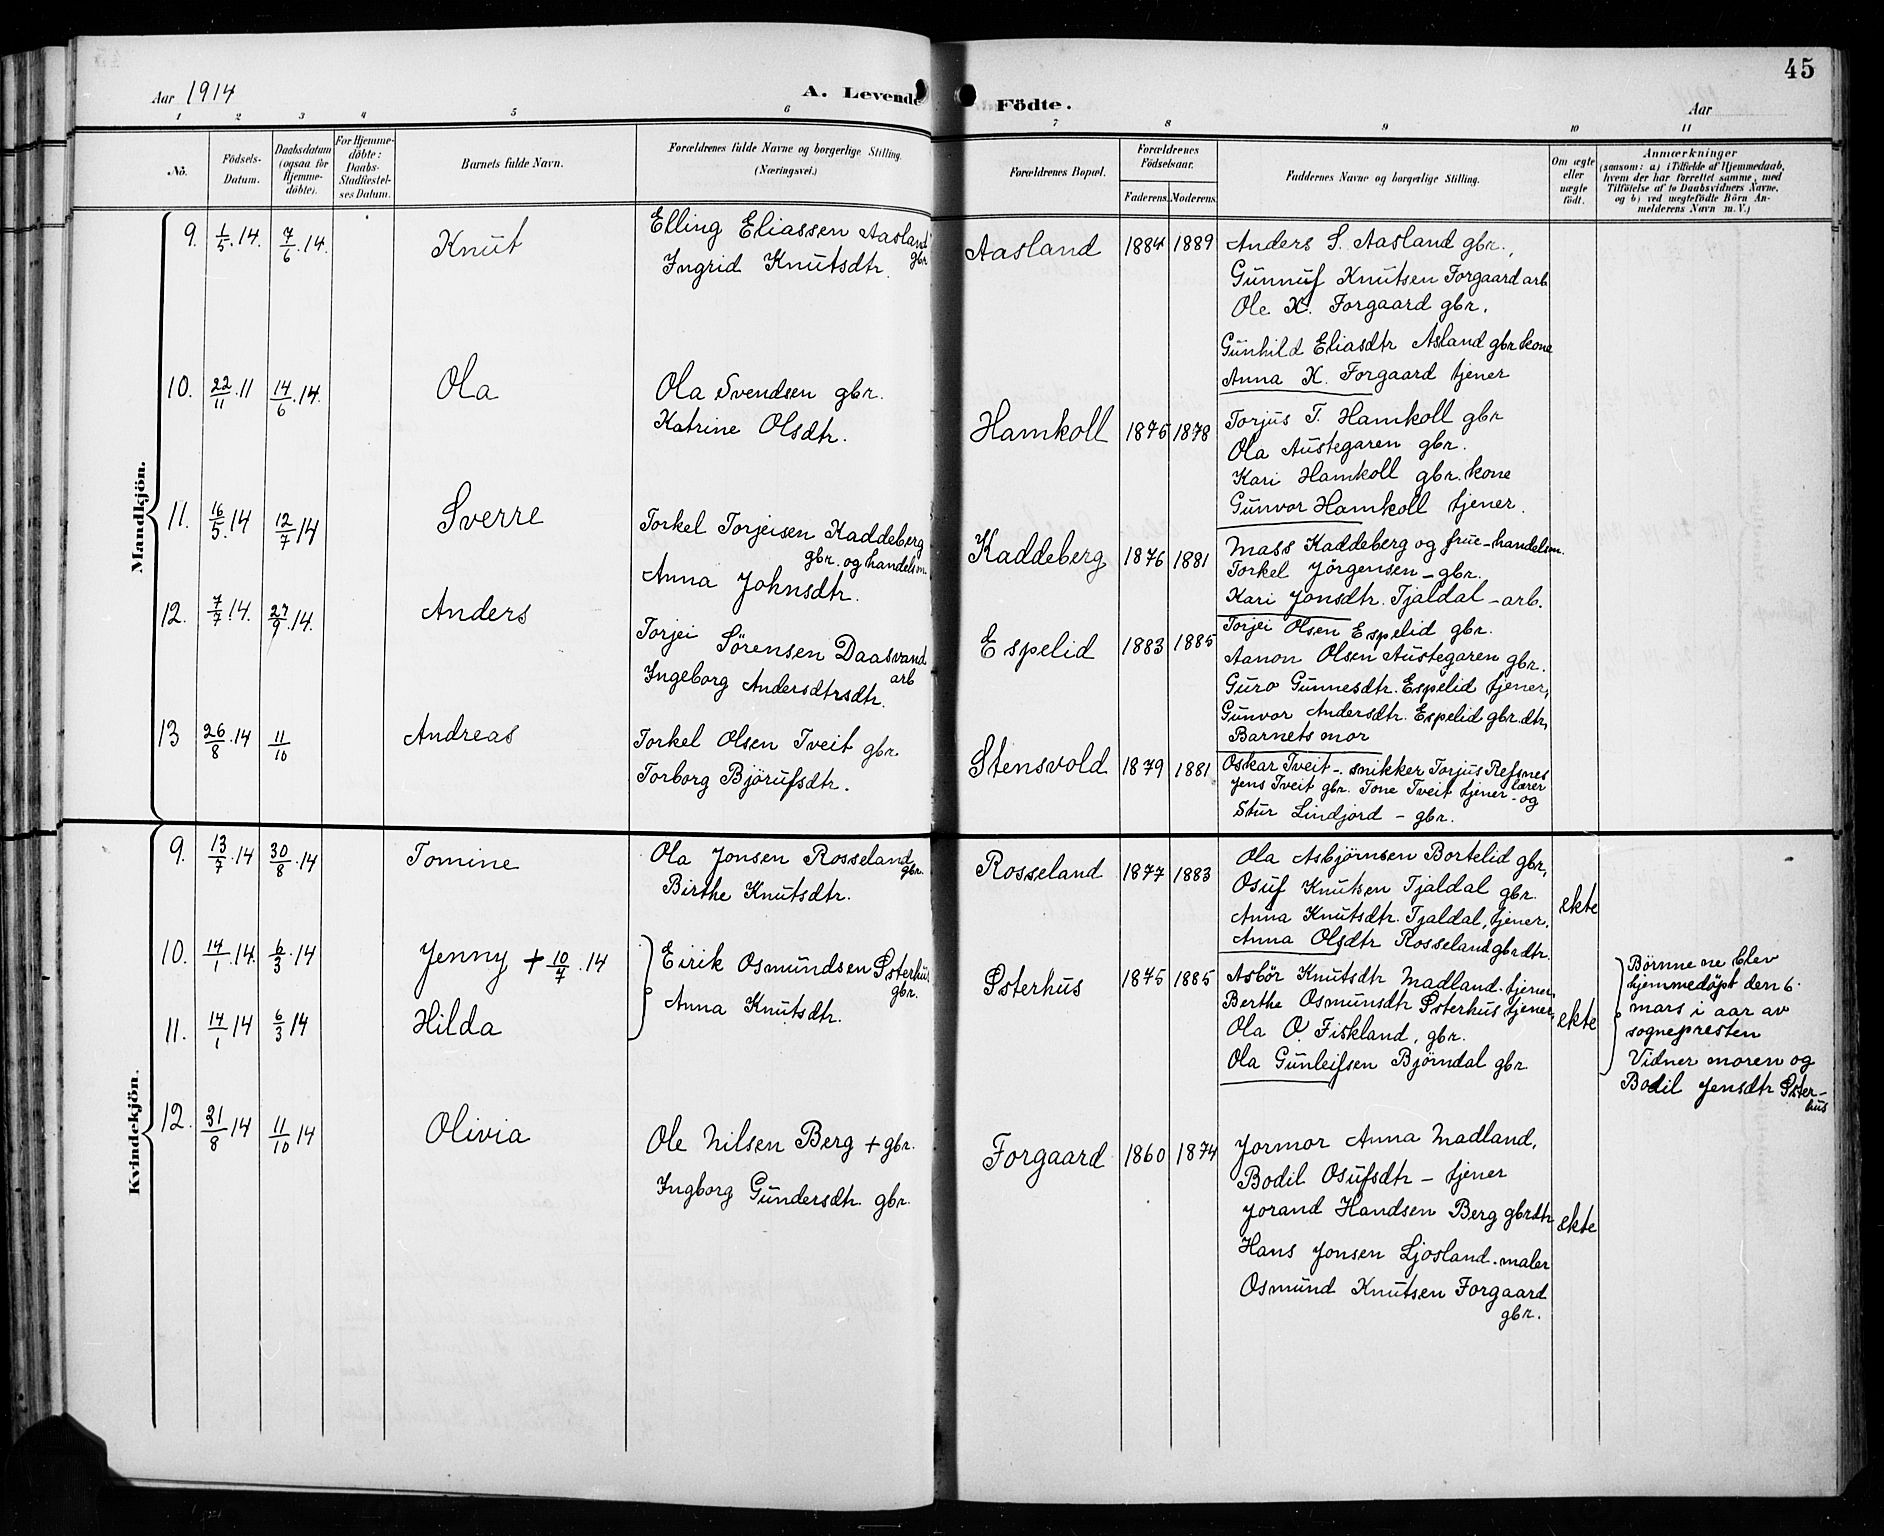 45
Aar 1914
A. Levende Födte.
Aar
1 2 3 4 5 6 7 8 9 10 11
No.
Födsels-Datum.
Daabsdatum (ogsaa for Hjemmedöbte).
For Hjemmedöbte: Daabs-Stadfæstelses Datum.
Barnets fulde Navn.
Forældrenes fulde Navne og borgerlige Stilling. (Næringsvei.)
Forældrenes Bopæl.
Forældrenes Födselsaar.
Faderens. Moderens.
Faddernes Navne og borgerlige Stilling.
Om ægte eller uægte födt.
Anmærkninger
(saasom: a) i Tilfælde af Hjemmedaab,
hvem der har forrettet samme, med
Tilföielse af to Daabsvidners Navne,
og b) ved uægtefödte Börn An-
melderens Navn m. V.)
Mandkjön.
9. 1/5.14. 7/6.14. Knut
Elling Eliassen Aasland gbr
Ingrid Knutsdtr.
Aasland 1884 1889
Anders S. Aasland gbr.,
Gunnuf Knutsen Forgaard arb
Ole K. Forgaard gbr.
Gunhild Eliasdtr Asland gbr kone
Anna K. Forgaard tjener
10. 22/11.11 14/6.14. Ola
Ola Svendsen gbr.
Katrine Olsdtr.
Hamkoll 1875 1878
Torjus T. Hamkoll gbr
Ola Austegaren gbr.
Kari Hamkoll gbr. kone
Gunvor Hamkoll tjener.
11. 16/5.14 12/7 14 Sverre
Torkel Torjeisen Kaddeberg
gbr. og handelsm.
Anna Johnsdtr.
Kaddeberg 1876 1881
Mass Kaddeberg og frue – handelsm.
Torkel Jörgensen – gbr.
Kari Jonsdtr. Tjaldal – arb.
12. 7/7.14. 27/9.14. Anders
Torjei Sørensen Daasvand
arb
Ingeborg Andersdtrsdtr.
Espelid 1883 1885
Torjei Olsen Espelid gbr.
Aanon Olsen Austegaren gbr.
Guro Gunnesdtr. Espelid tjener,
Gunvor Andersdtr. Espelid gbr. dtr,
Barnets mor
13 26/8.14 11/10 Andreas
Torkel Olsen Tveit gbr
Torborg Bjørufsdtr.
Stensvold 1879 1881
Oskar Tveit – snikker Torjus Refsnes
lærer
Jens Tveit gbr. Tone Tveit tjener – og
Stur Lindjord – gbr.
Kvindekjön.
9. 13/7.14 30/8.14 Tomine
Ola Jonsen Rosseland
gbr.
Birthe Knutsdtr.
Rosseland 1877 1883
Ola Asbjørnsen Bortelid gbr,
Osuf Knutsen Tjaldal gbr.
Anna Knutsdtr. Tjaldal, tjener.
Anna Olsdtr Rosseland gbr dtr.
ekte
10. 14/1.14. 6/3.14 Jenny + 10/7.14
11. 14/1 14 6/3 14 Hilda
Eirik Osmundsen Østerhus
gbr.
Anna Knutsdtr.
Østerhus 1875 1885
Asbör Knutsdtr Madland. tjener,
Berthe Osmunsdtr Østerhus tjener,
Ola O. Fiskland, gbr.
Ola Gunleifsen Bjørndal gbr
ekte
Børnene blev
hjemmedøpt den 6.
mars i aar av
sognepresten
Vidner moren og
Bodil Jensdtr Øster-
hus
12. 31/8 14 11/10 14 Olivia
Ole Nilsen Berg + gbr.
Ingborg Gundersdtr. gbr.
Forgaard 1860 1874
Jormor Anna Madland,
Bodil Osufsdtr – tjener
Jorand Handsen Berg gbrdtr
Hans Jonsen Ljosland. maler
Osmund Knutsen Forgaard
gbr.
ekte